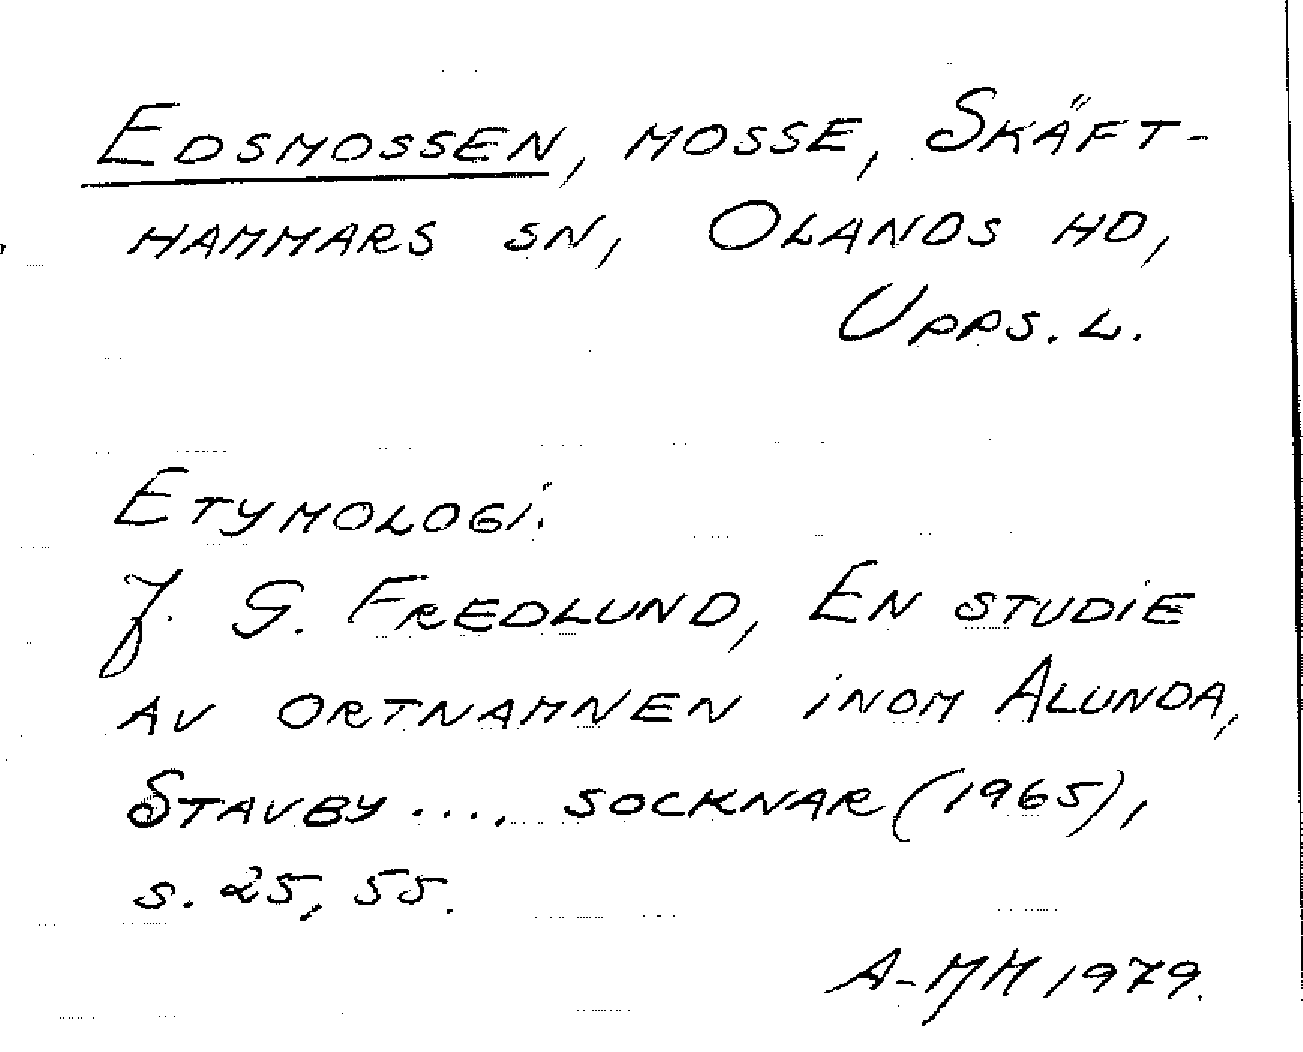 EDSMOSSEN, MOSSE, SKÄFT-
HAMMARS SN, OLANDS HD,
UPPS. L.
ETYMOLOGI:
J. G. FREDLUND, EN STUDIE
AV ORTNAMNEN INOM ALUNDA,
STAVBY ..., SOCKNAR (1965),
S. 25, 55.
A-MH 1979.